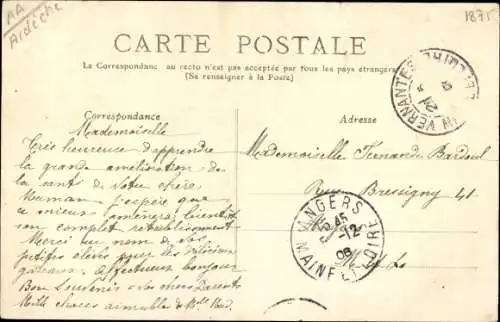 AA
Ardèche
1875
CARTE POSTALE
La Correspondance au recto n'est pas acceptée par tous les pays étrangers
(Se renseigner à la Poste.)
Correspondance
Adresse
Mademoiselle
Très heureuse d'apprendre
la grande amélioration de
la santé de Votre chère
Maman j'espère que
ce mieux amènera bientôt
un complet rétablissement
Merci au nom de vos
petites élèves pour les délicieux
gateaux. Affectueux bonjour
Bon Souvenir à vos chers Parents
Mille choses aimables de Melle
Mademoiselle Fernande Bardoul
Rue Bressigny 41
VERNANTES
ANGERS
MAINE ET LOIRE